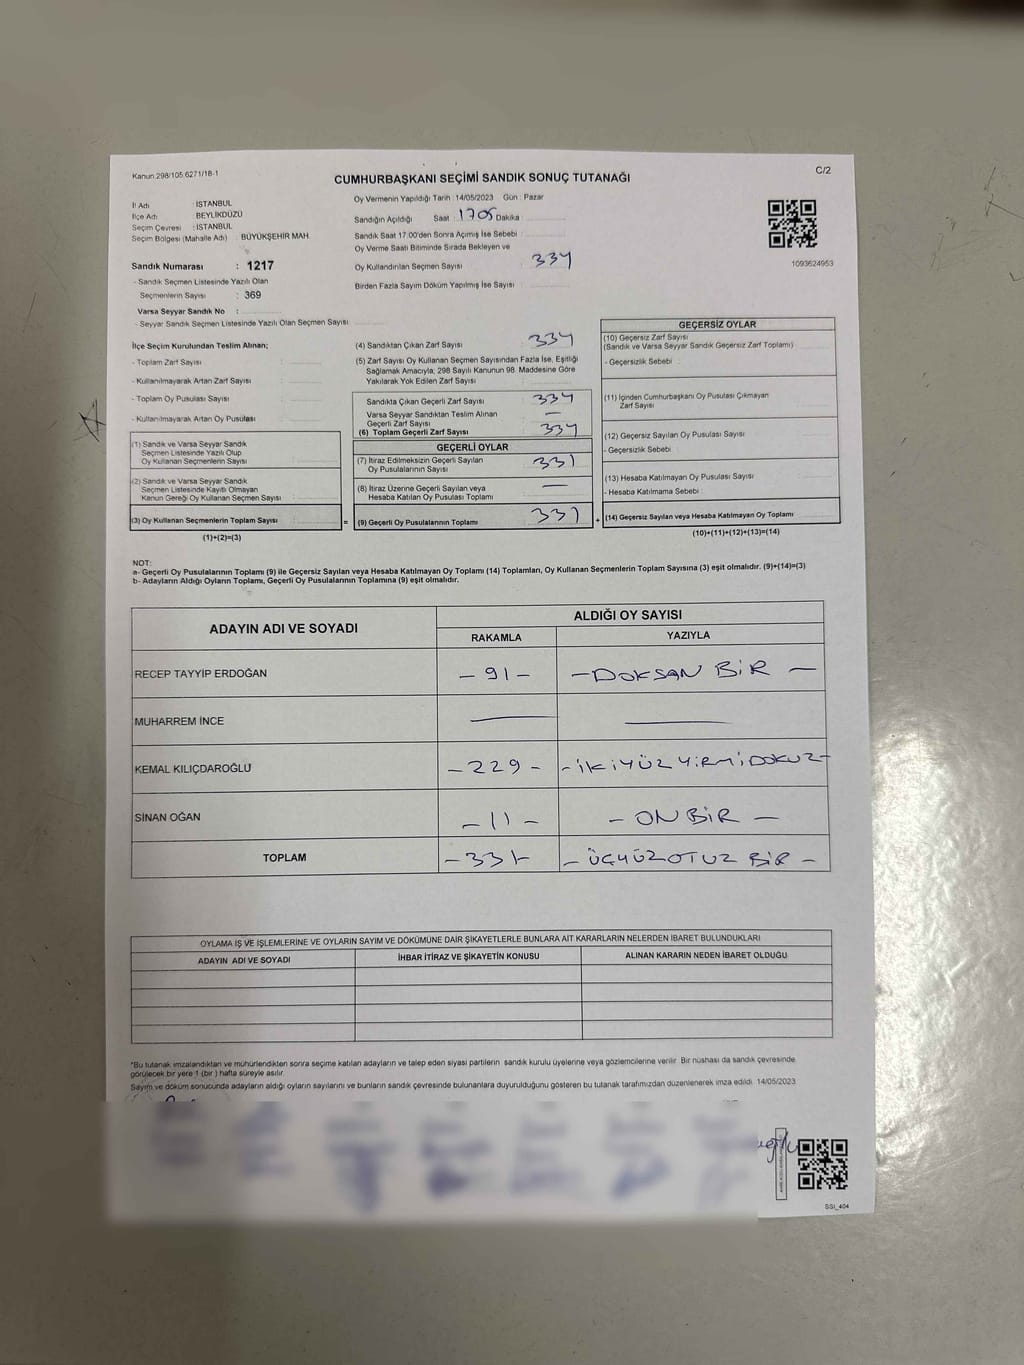 Kanun 298/105,6271/18-1
C/2
CUMHURBAŞKANI SEÇİMİ SANDIK SONUÇ TUTANAĞI
İl Adı : İSTANBUL
İlçe Adı : BEYLİKDÜZÜ
Seçim Çevresi : İSTANBUL
Seçim Bölgesi (Mahalle Adı) : BÜYÜKŞEHİR MAH.
Sandık Numarası : 1217
- Sandık Seçmen Listesinde Yazılı Olan
Seçmenlerin Sayısı : 369
Varsa Seyyar Sandık No :
- Seyyar Sandık Seçmen Listesinde Yazılı Olan Seçmen Sayısı
Oy Vermenin Yapıldığı Tarih : 14/05/2023 Gün : Pazar
Sandığın Açıldığı Saat : 1705 Dakika :
Sandık Saat 17.00'den Sonra Açımış İse Sebebi :
Oy Verme Saati Bitiminde Sırada Bekleyen ve
Oy Kullandırılan Seçmen Sayısı : 334
Birden Fazla Sayım Döküm Yapılmış İse Sayısı :
1093624953
İlçe Seçim Kurulundan Teslim Alınan;
- Toplam Zarf Sayısı :
- Kullanılmayarak Artan Zarf Sayısı :
- Toplam Oy Pusulası Sayısı :
- Kullanılmayarak Artan Oy Pusulası :
(1) Sandık ve Varsa Seyyar Sandık
Seçmen Listesinde Yazılı Olup
Oy Kullanan Seçmenlerin Sayısı :
(2) Sandık ve Varsa Seyyar Sandık
Seçmen Listesinde Kayıtlı Olmayan
Kanun Gereği Oy Kullanan Seçmen Sayısı :
(3) Oy Kullanan Seçmenlerin Toplam Sayısı
(1)+(2)=(3)
=
(4) Sandıktan Çıkan Zarf Sayısı : 334
(5) Zarf Sayısı Oy Kullanan Seçmen Sayısından Fazla İse, Eşitliği
Sağlamak Amacıyla; 298 Sayılı Kanunun 98. Maddesine Göre
Yakılarak Yok Edilen Zarf Sayısı :
Sandıkta Çıkan Geçerli Zarf Sayısı : 334
Varsa Seyyar Sandıktan Teslim Alınan
Geçerli Zarf Sayısı : —
(6) Toplam Geçerli Zarf Sayısı : 334
GEÇERLİ OYLAR
(7) İtiraz Edilmeksizin Geçerli Sayılan
Oy Pusulalarının Sayısı : 331
(8) İtiraz Üzerine Geçerli Sayılan veya
Hesaba Katılan Oy Pusulası Toplamı : —
(9) Geçerli Oy Pusulalarının Toplamı : 331
+
GEÇERSİZ OYLAR
(10) Geçersiz Zarf Sayısı
(Sandık ve Varsa Seyyar Sandık Geçersiz Zarf Toplamı) :
- Geçersizlik Sebebi :
(11) İçinden Cumhurbaşkanı Oy Pusulası Çıkmayan
Zarf Sayısı :
(12) Geçersiz Sayılan Oy Pusulası Sayısı :
- Geçersizlik Sebebi :
(13) Hesaba Katılmayan Oy Pusulası Sayısı :
- Hesaba Katılmama Sebebi :
(14) Geçersiz Sayılan veya Hesaba Katılmayan Oy Toplamı
(10)+(11)+(12)+(13)=(14)
NOT:
a- Geçerli Oy Pusulalarının Toplamı (9) ile Geçersiz Sayılan veya Hesaba Katılmayan Oy Toplamı (14) Toplamları, Oy Kullanan Seçmenlerin Toplam Sayısına (3) eşit olmalıdır. (9)+(14)=(3)
b- Adayların Aldığı Oyların Toplamı, Geçerli Oy Pusulalarının Toplamına (9) eşit olmalıdır.
ADAYIN ADI VE SOYADI
ALDIĞI OY SAYISI
RAKAMLA YAZIYLA
RECEP TAYYİP ERDOĞAN - 91 - - DOKSAN BİR -
MUHARREM İNCE — —
KEMAL KILIÇDAROĞLU - 229 - - İKİYÜZYİRMİDOKUZ -
SİNAN OĞAN - 11 - - ON BİR -
TOPLAM - 331 - - ÜÇYÜZOTUZ BİR -
OYLAMA İŞ VE İŞLEMLERİNE VE OYLARIN SAYIM VE DÖKÜMÜNE DAİR ŞİKAYETLERLE BUNLARA AİT KARARLARIN NELERDEN İBARET BULUNDUKLARI
ADAYIN ADI VE SOYADI İHBAR İTİRAZ VE ŞİKAYETİN KONUSU ALINAN KARARIN NEDEN İBARET OLDUĞU
*Bu tutanak imzalandıktan ve mühürlendikten sonra seçime katılan adayların ve talep eden siyasi partilerin sandık kurulu üyelerine veya gözlemcilerine verilir. Bir nüshası da sandık çevresinde
görülecek bir yere 1 (bir ) hafta süreyle asılır.
Sayım ve döküm sonucunda adayların aldığı oyların sayılarını ve bunların sandık çevresinde bulunanlara duyurulduğunu gösteren bu tutanak tarafımızdan düzenlenerek imza edildi. 14/05/2023
SSI_404